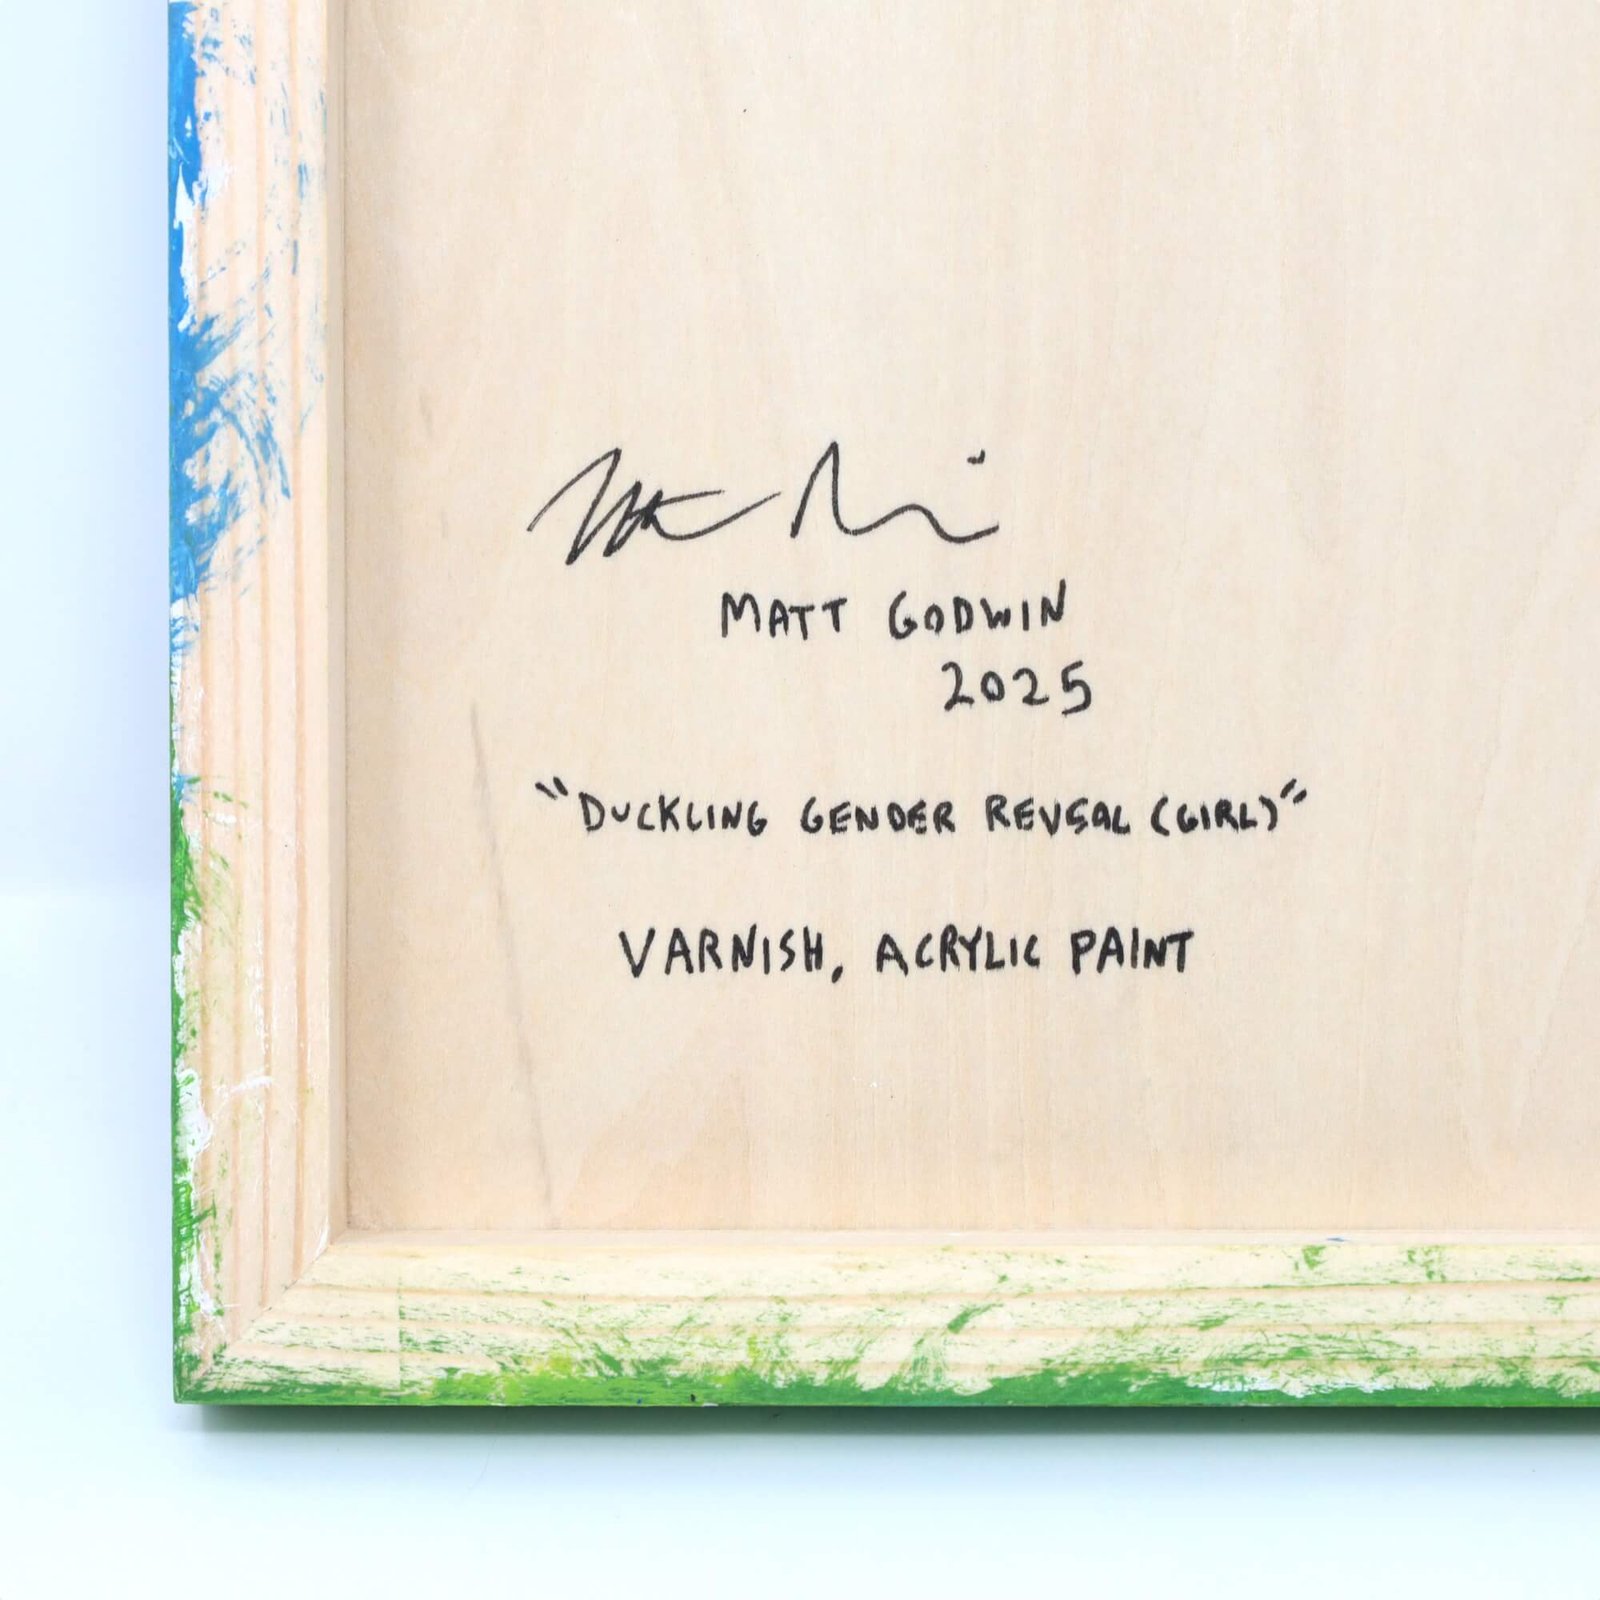 MATT GODWIN
2025
"DUCKLING GENDER REVEAL (GIRL)"
VARNISH, ACRYLIC PAINT